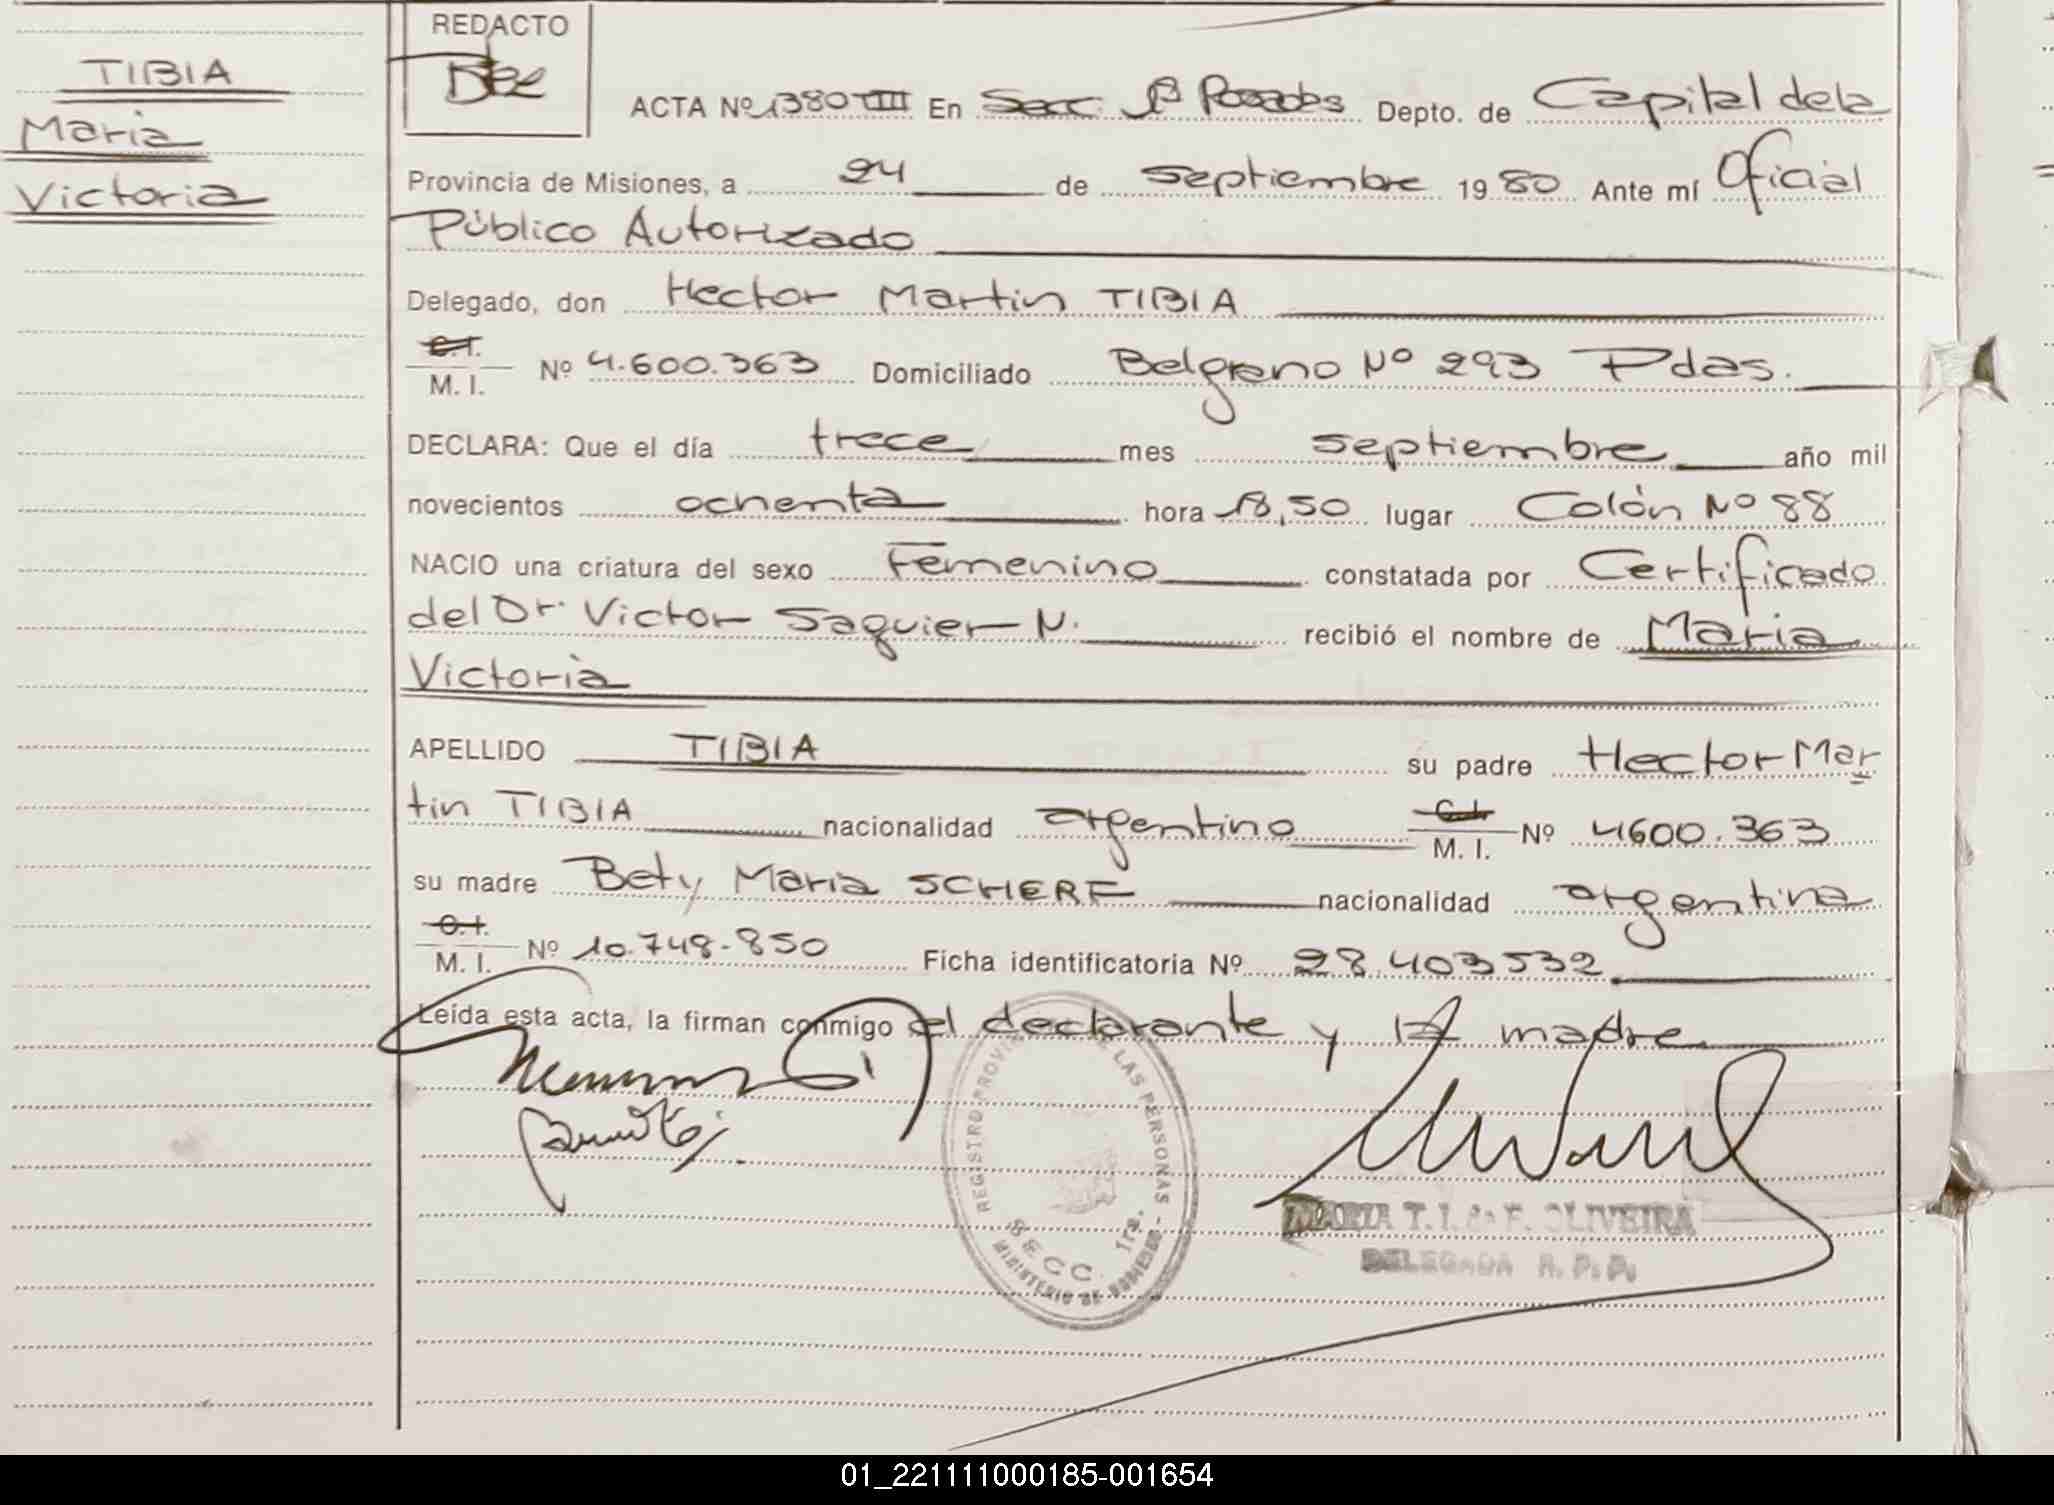 TIBIA
Maria
Victoria
REDACTO
ACTA Nº 1380 IIII En Secc. 1ª Posadas Depto. de Capital de la
Provincia de Misiones, a 24 de septiembre 1980 Ante mí Oficial
Público Autorizado
Delegado, don Hector Martin TIBIA
C.I.
M. I. Nº 4.600.363 Domiciliado Belgrano Nº 293 Pdas.
DECLARA: Que el día trece mes septiembre año mil
novecientos ochenta hora 18,50 lugar Colón Nº 88
NACIO una criatura del sexo Femenino constatada por Certificado
del Dr. Victor Saguier N. recibió el nombre de Maria
Victoria
APELLIDO TIBIA su padre Hector Mar
tin TIBIA nacionalidad argentino C.I. M. I. Nº 4600.363
su madre Bety Maria SCHERF nacionalidad argentina
C.I.
M. I. Nº 10.748.850 Ficha identificatoria Nº 28.403532
Leída esta acta, la firman conmigo el declarante y la madre
REGISTRO PROVINCIAL DE LAS PERSONAS
SECC. 1ra.
MINISTERIO DE GOBIERNO
MARIA T. I. de F. OLIVEIRA
DELEGADA R. P. P.
01_221111000185-001654